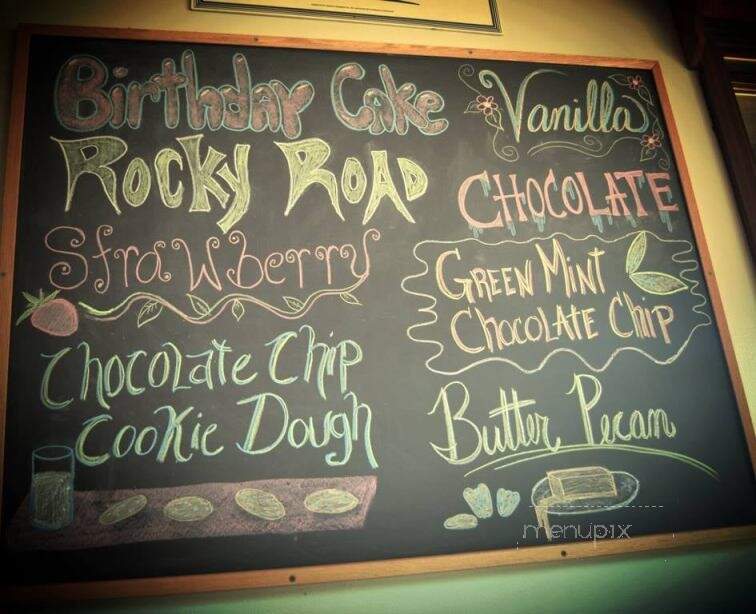 Birthday Cake
Rocky Road
Strawberry
Chocolate Chip
Cookie Dough
Vanilla
CHOCOLATE
GREEN MINT
CHOCOLATE CHIP
Butter Pecan
menupix